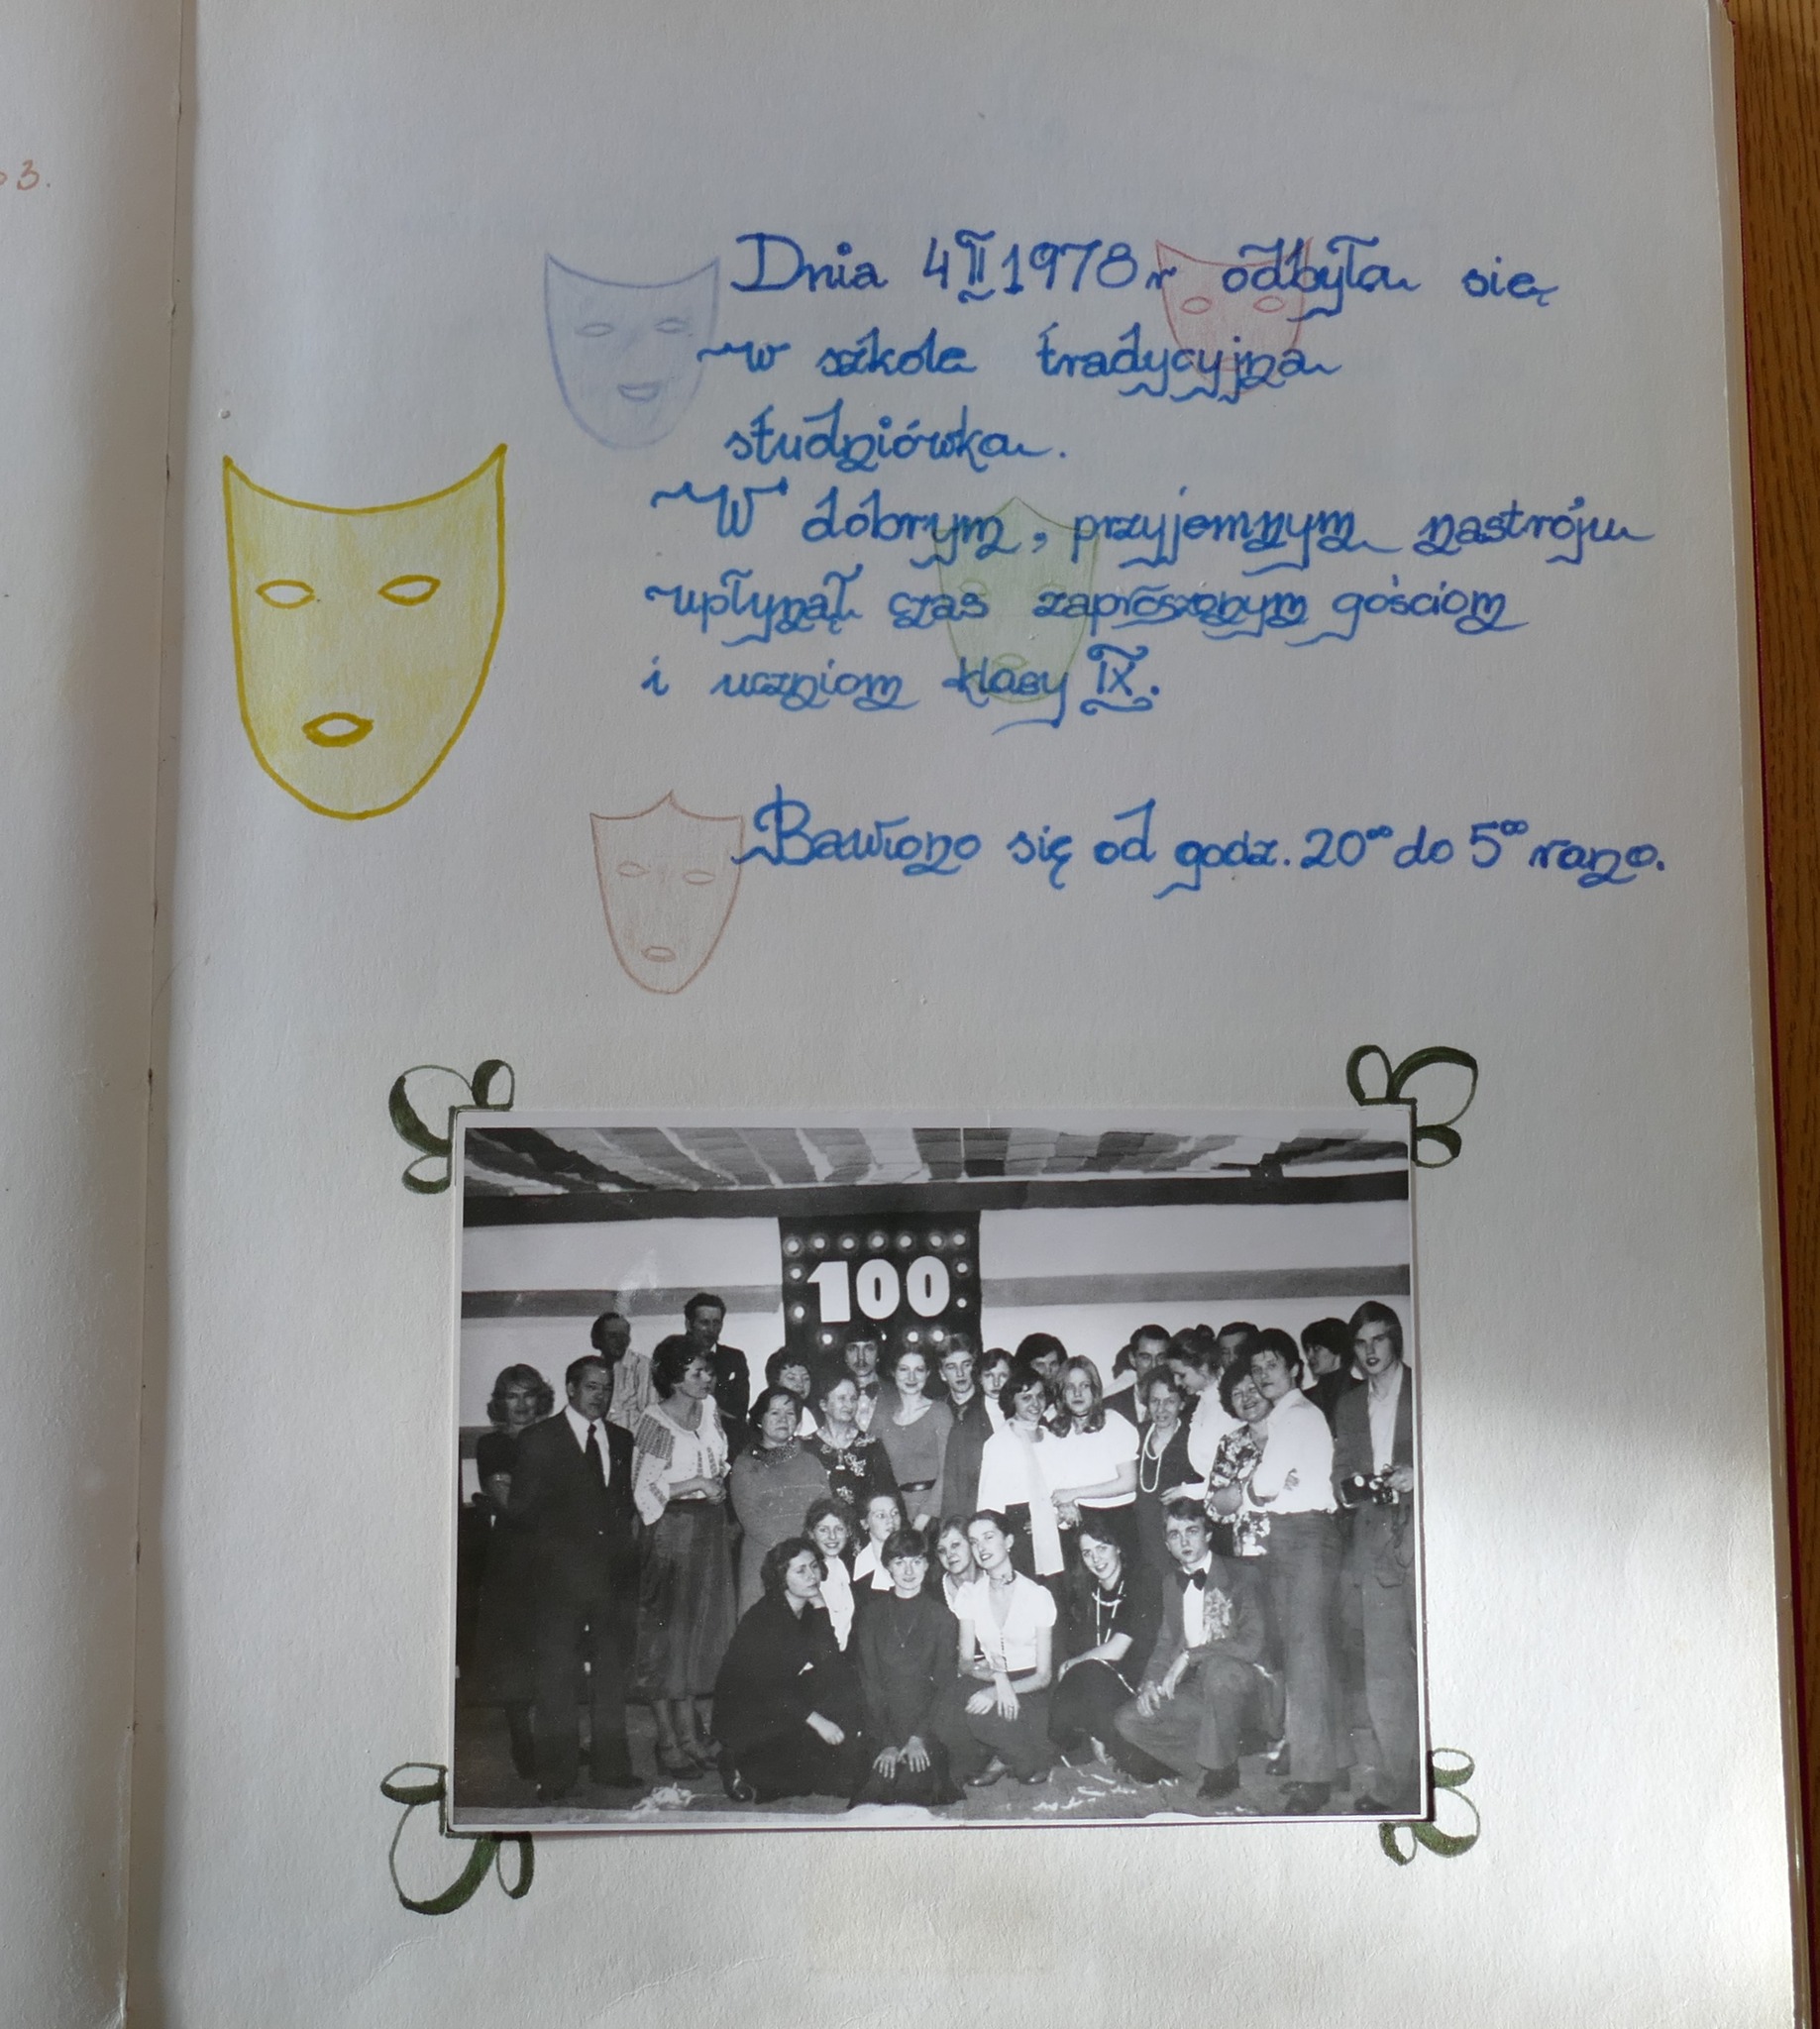 3.
Dnia 4 II 1978 r odbyła się
w szkole tradycyjna
studniówka.
W dobrym, przyjemnym nastroju
upłynął czas zaproszonym gościom
i uczniom klasy IX.
Bawiono się od godz. 20⁰⁰ do 5⁰⁰ rano.
100